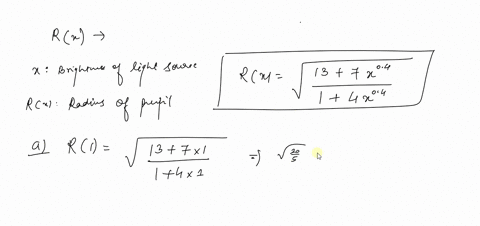 R(x) →
x: Brightness of light source
R(x): Radius of pupil
R(x) = √((13 + 7x^0.4)/(1 + 4x^0.4))
a) R(1) = √((13 + 7×1)/(1 + 4×1)) ⇒ √(20/5)